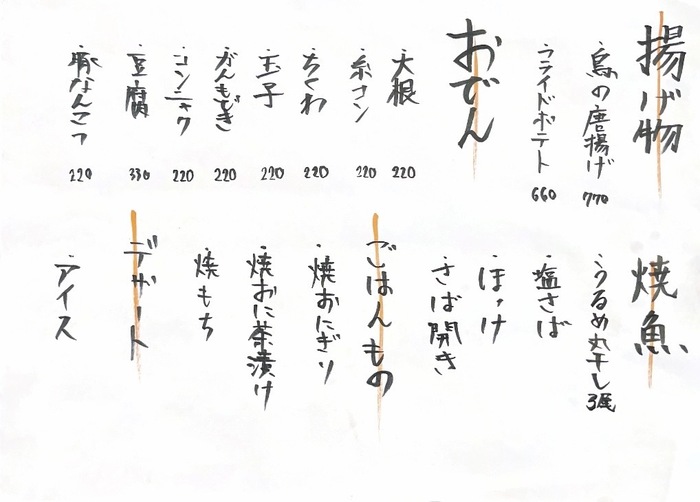 揚げ物
鳥の唐揚げ 770
フライドポテト 660
おでん
大根 220
糸コン 220
ちくわ 220
玉子 220
がんもどき 220
コンニャク 220
豆腐 330
豚なんこつ 220
焼魚
うるめ丸干し3尾
塩さば
ほっけ
さば開き
ごはんもの
焼おにぎり
焼おに茶漬け
焼もち
デザート
アイス